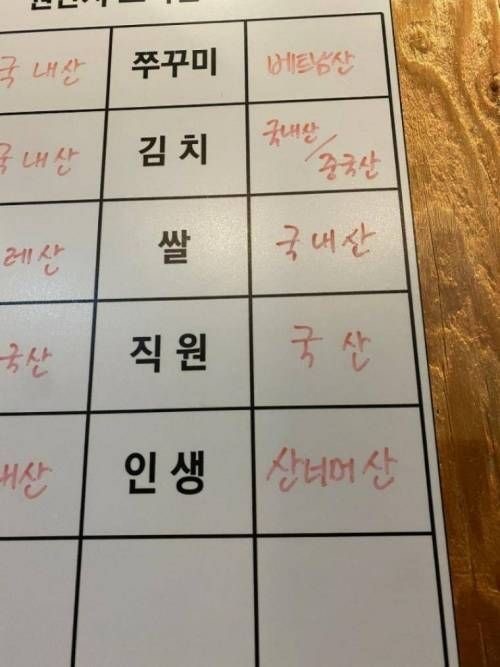 국내산 쭈꾸미 베트남산
국내산 김치 국내산/
중국산
쌀 국내산
직원 국산
인생 산너머 산